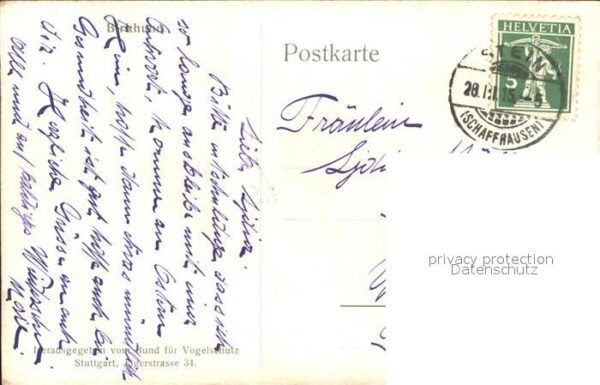 Birkhuhn
Postkarte
HELVETIA
5
STEIN
(SCHAFFHAUSEN)
Fräulein
Liebe
Bitte entschuldige dass ich
so lange ausbleibe mit einer
Antwort, komme an Ostern
Heim, hoffe dann etwas
Gesundheit ist gut hoffe auch bei
Dir. Herzliche Grüsse an euch
Alle und auf baldiges Wiedersehn
Herausgegeben vom Bund für Vogelschutz
Stuttgart, Jägerstrasse 34.
privacy protection
Datenschutz